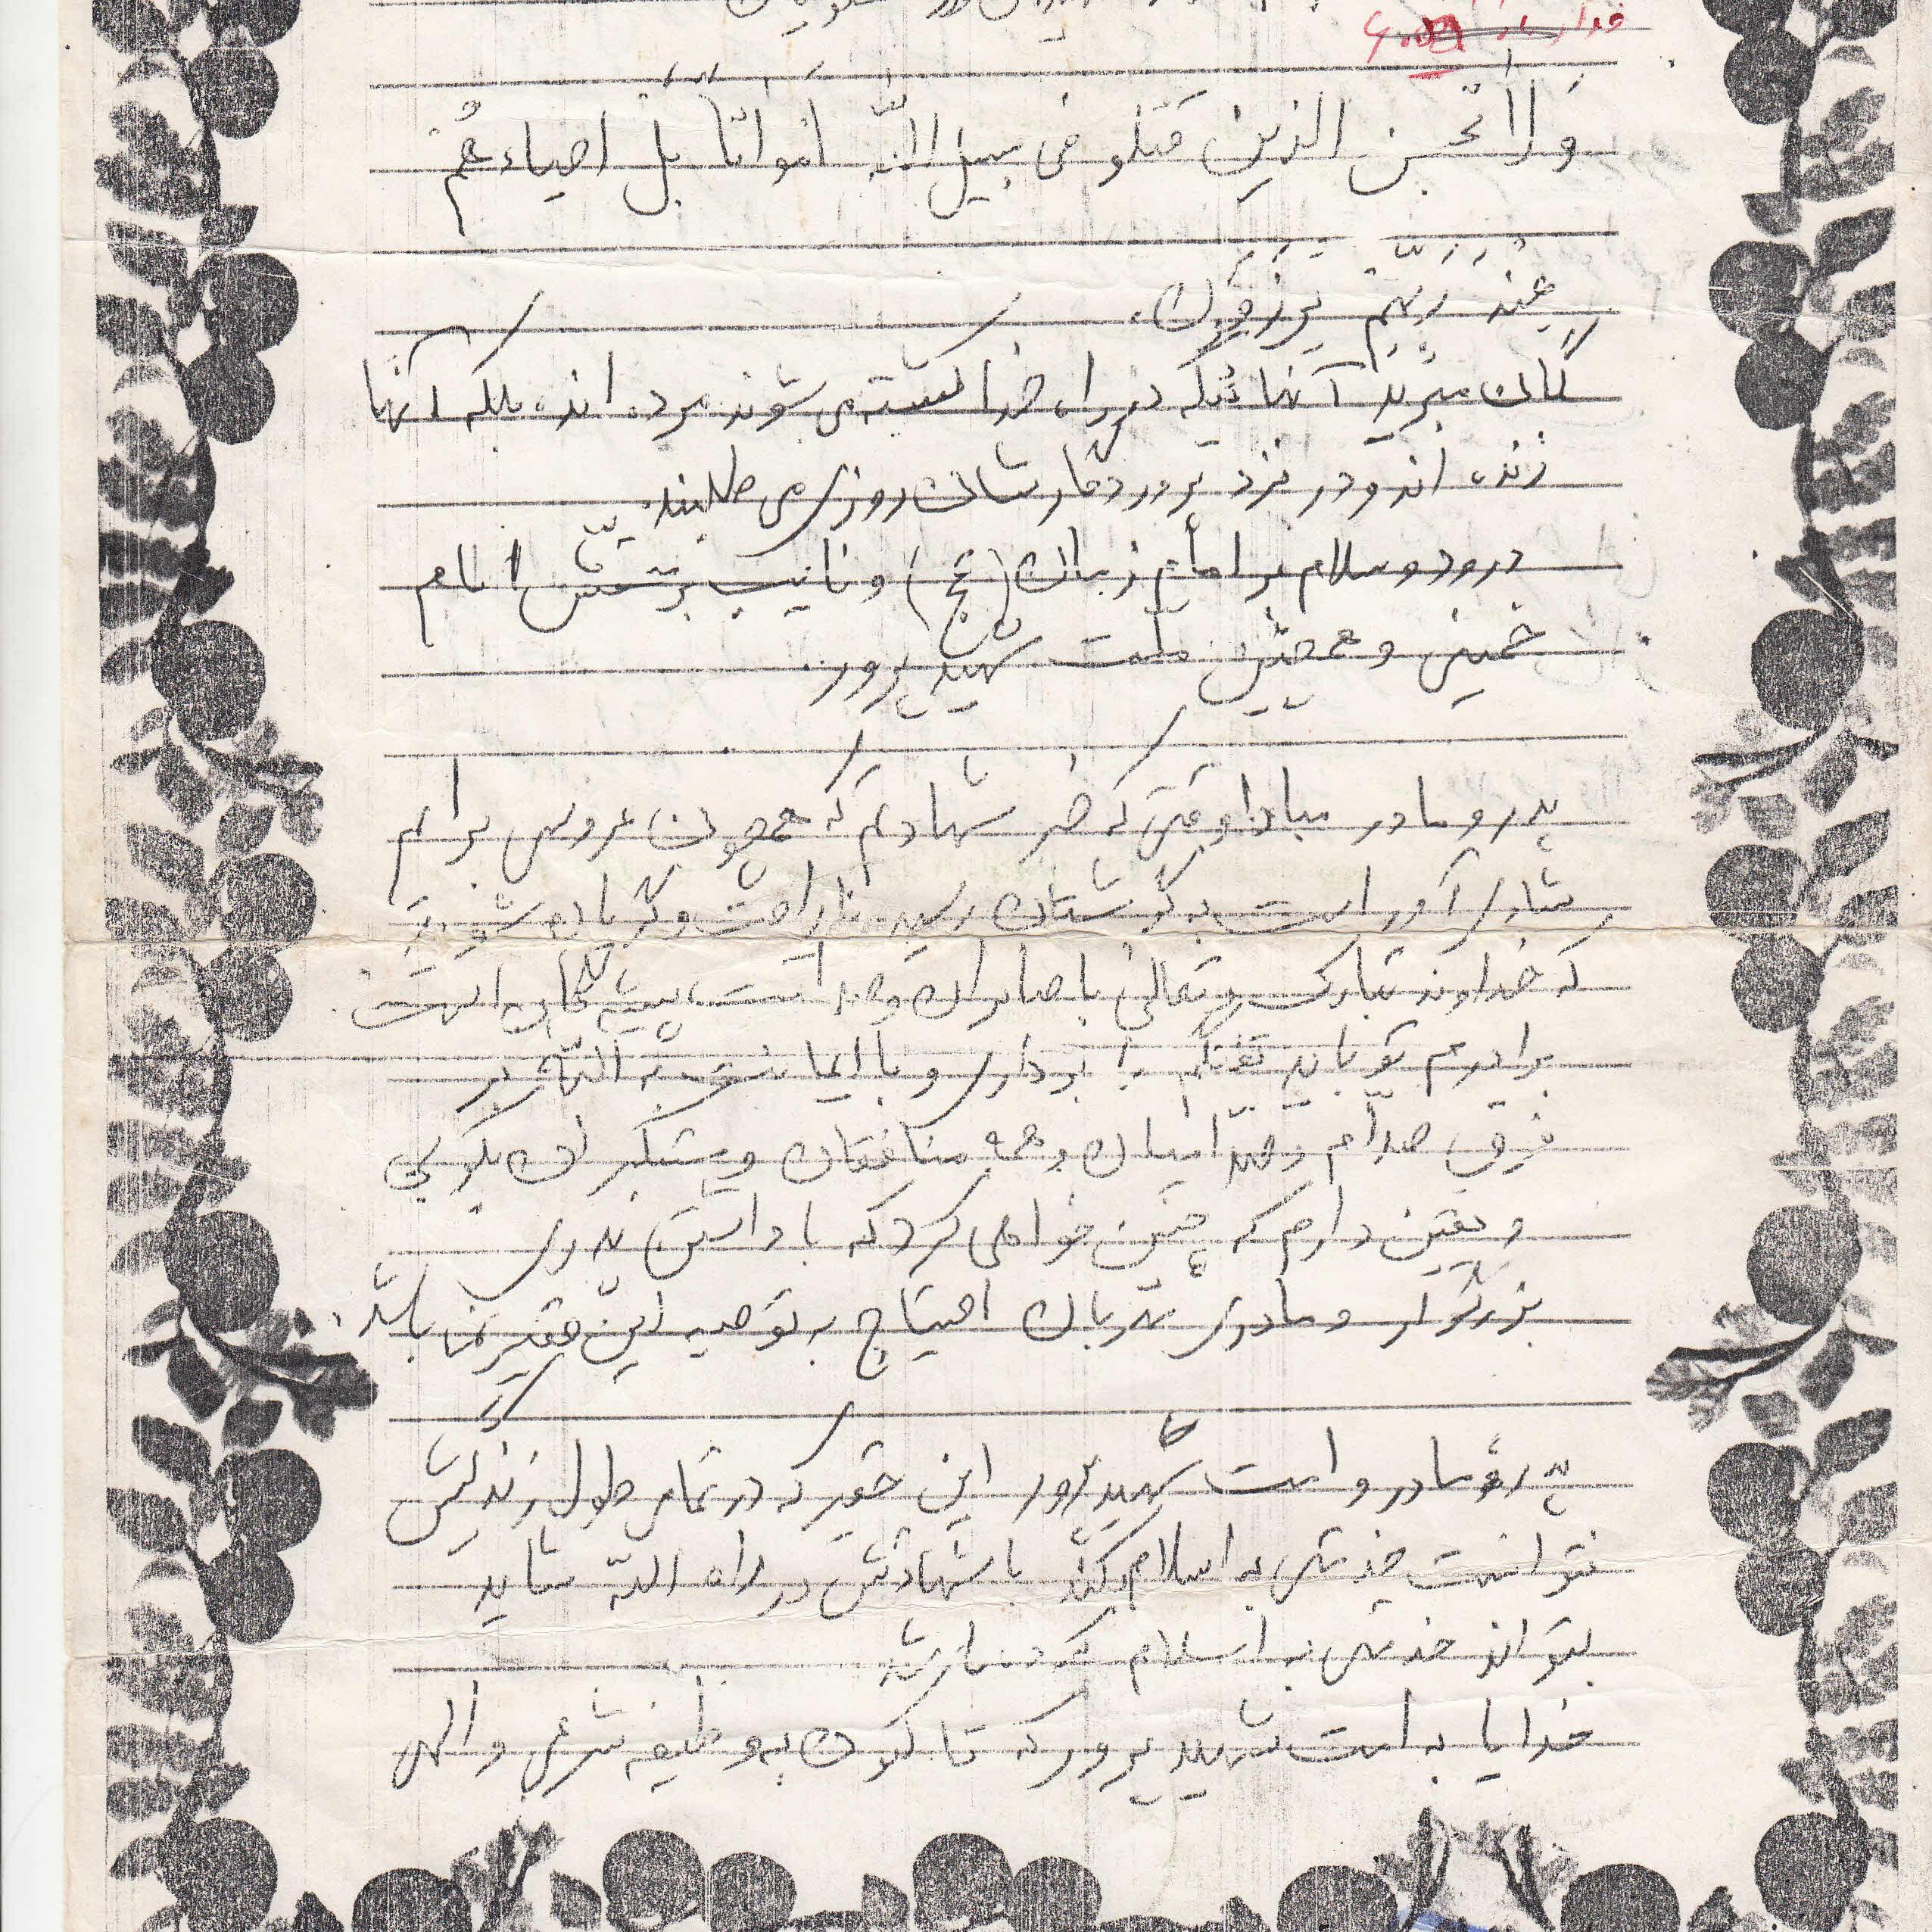 وَلا تحسبن الذین قتلو فی سبیل اللّه أمواتاً بل احیاء هُم
عِندَ رَبِّهِم یُرزَقون.
گمان مبرید آنهائیکه در راه خدا کشته می شوند مرده اند، بلکه آنها
زنده اند و در نزد پروردگارشان روزی می طلبند.
درود و سلام بر امام زمان (عج) و نایب برحقش امام
خمینی و همچنین ملت شهید پرور..
پدر و مادر مبادا وقتی که خبر شهادتم که همچون عروسی برایم
شادی آور است به گوشتان رسید ناراحت و گریان شوید
که خداوند تبارک و تعالی با صابران
برادرم تو باید تفنگم را برداری و با ایمانت به اللّه بر
فرق صدّام و صدّامیان و همه منافقان و مستکبران بکوبی
و یقین دارم که چنین خواهی کرد که با داشتن پدری
بزرگوار و مادری مهربان احتیاج به توصیه این حقیر نمی باشد.
پدر و مادر و امت شهید پرور این حقیر که در تمام طول زندگیش
نتوانست خدمتی به اسلام بکند با شهادتش در راه اللّه شاید
بتواند خدمتی به اسلام کرده باشد
خدایا به امت شهید پرور که تا کنون به وظیفه شرعی و الهی